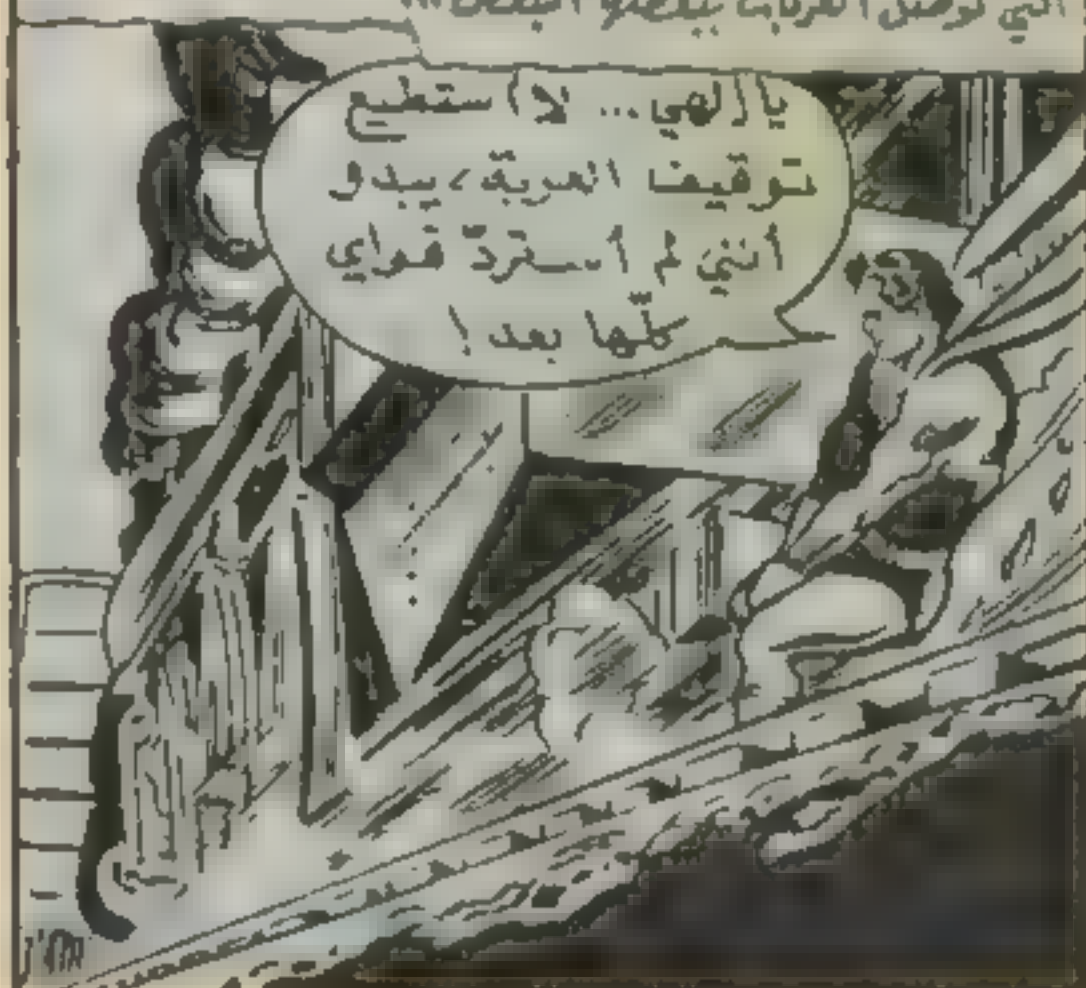 التي توصل العربات ببعضها البعض...
يا إلهي... لا أستطيع
توقيف العربة، يبدو
أنني لم أسترد قواي
كلّها بعد !